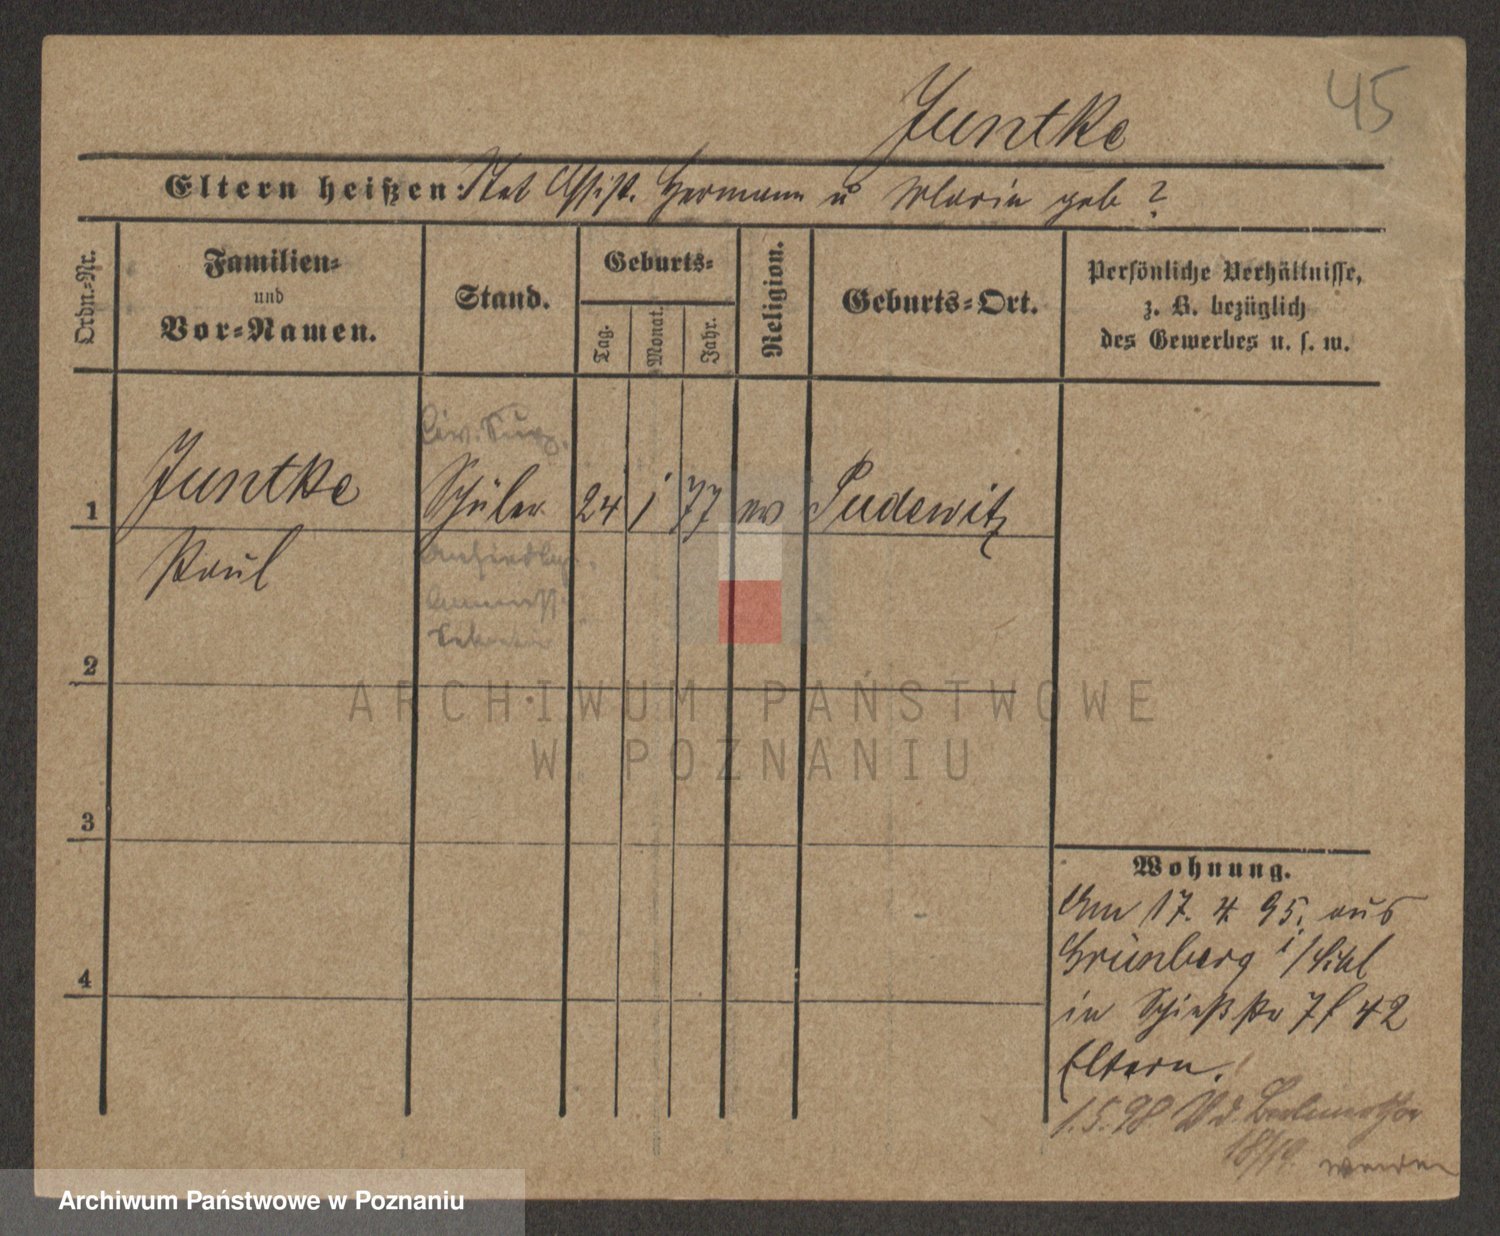 45
Juntke
Eltern heißen: Stat Assist. Hermann u Maria geb ?
Ordn.-Nr.
Familien-
und
Vor-Namen.
Stand.
Geburts-
Tag.
Monat.
Jahr.
Religion.
Geburts-Ort.
Persönliche Verhältnisse,
z. B. bezüglich
des Gewerbes u. s. w.
1
Juntke
Schüler
24
1
77
ev
Pudewitz
Paul
2
3
4
ARCHIWUM PAŃSTWOWE
W POZNANIU
Wohnung.
Am 17. 4. 95. aus
Grünberg i/Schl
in Schießstr 7 b 42
Eltern.
1.5.98
18/19.
Archiwum Państwowe w Poznaniu